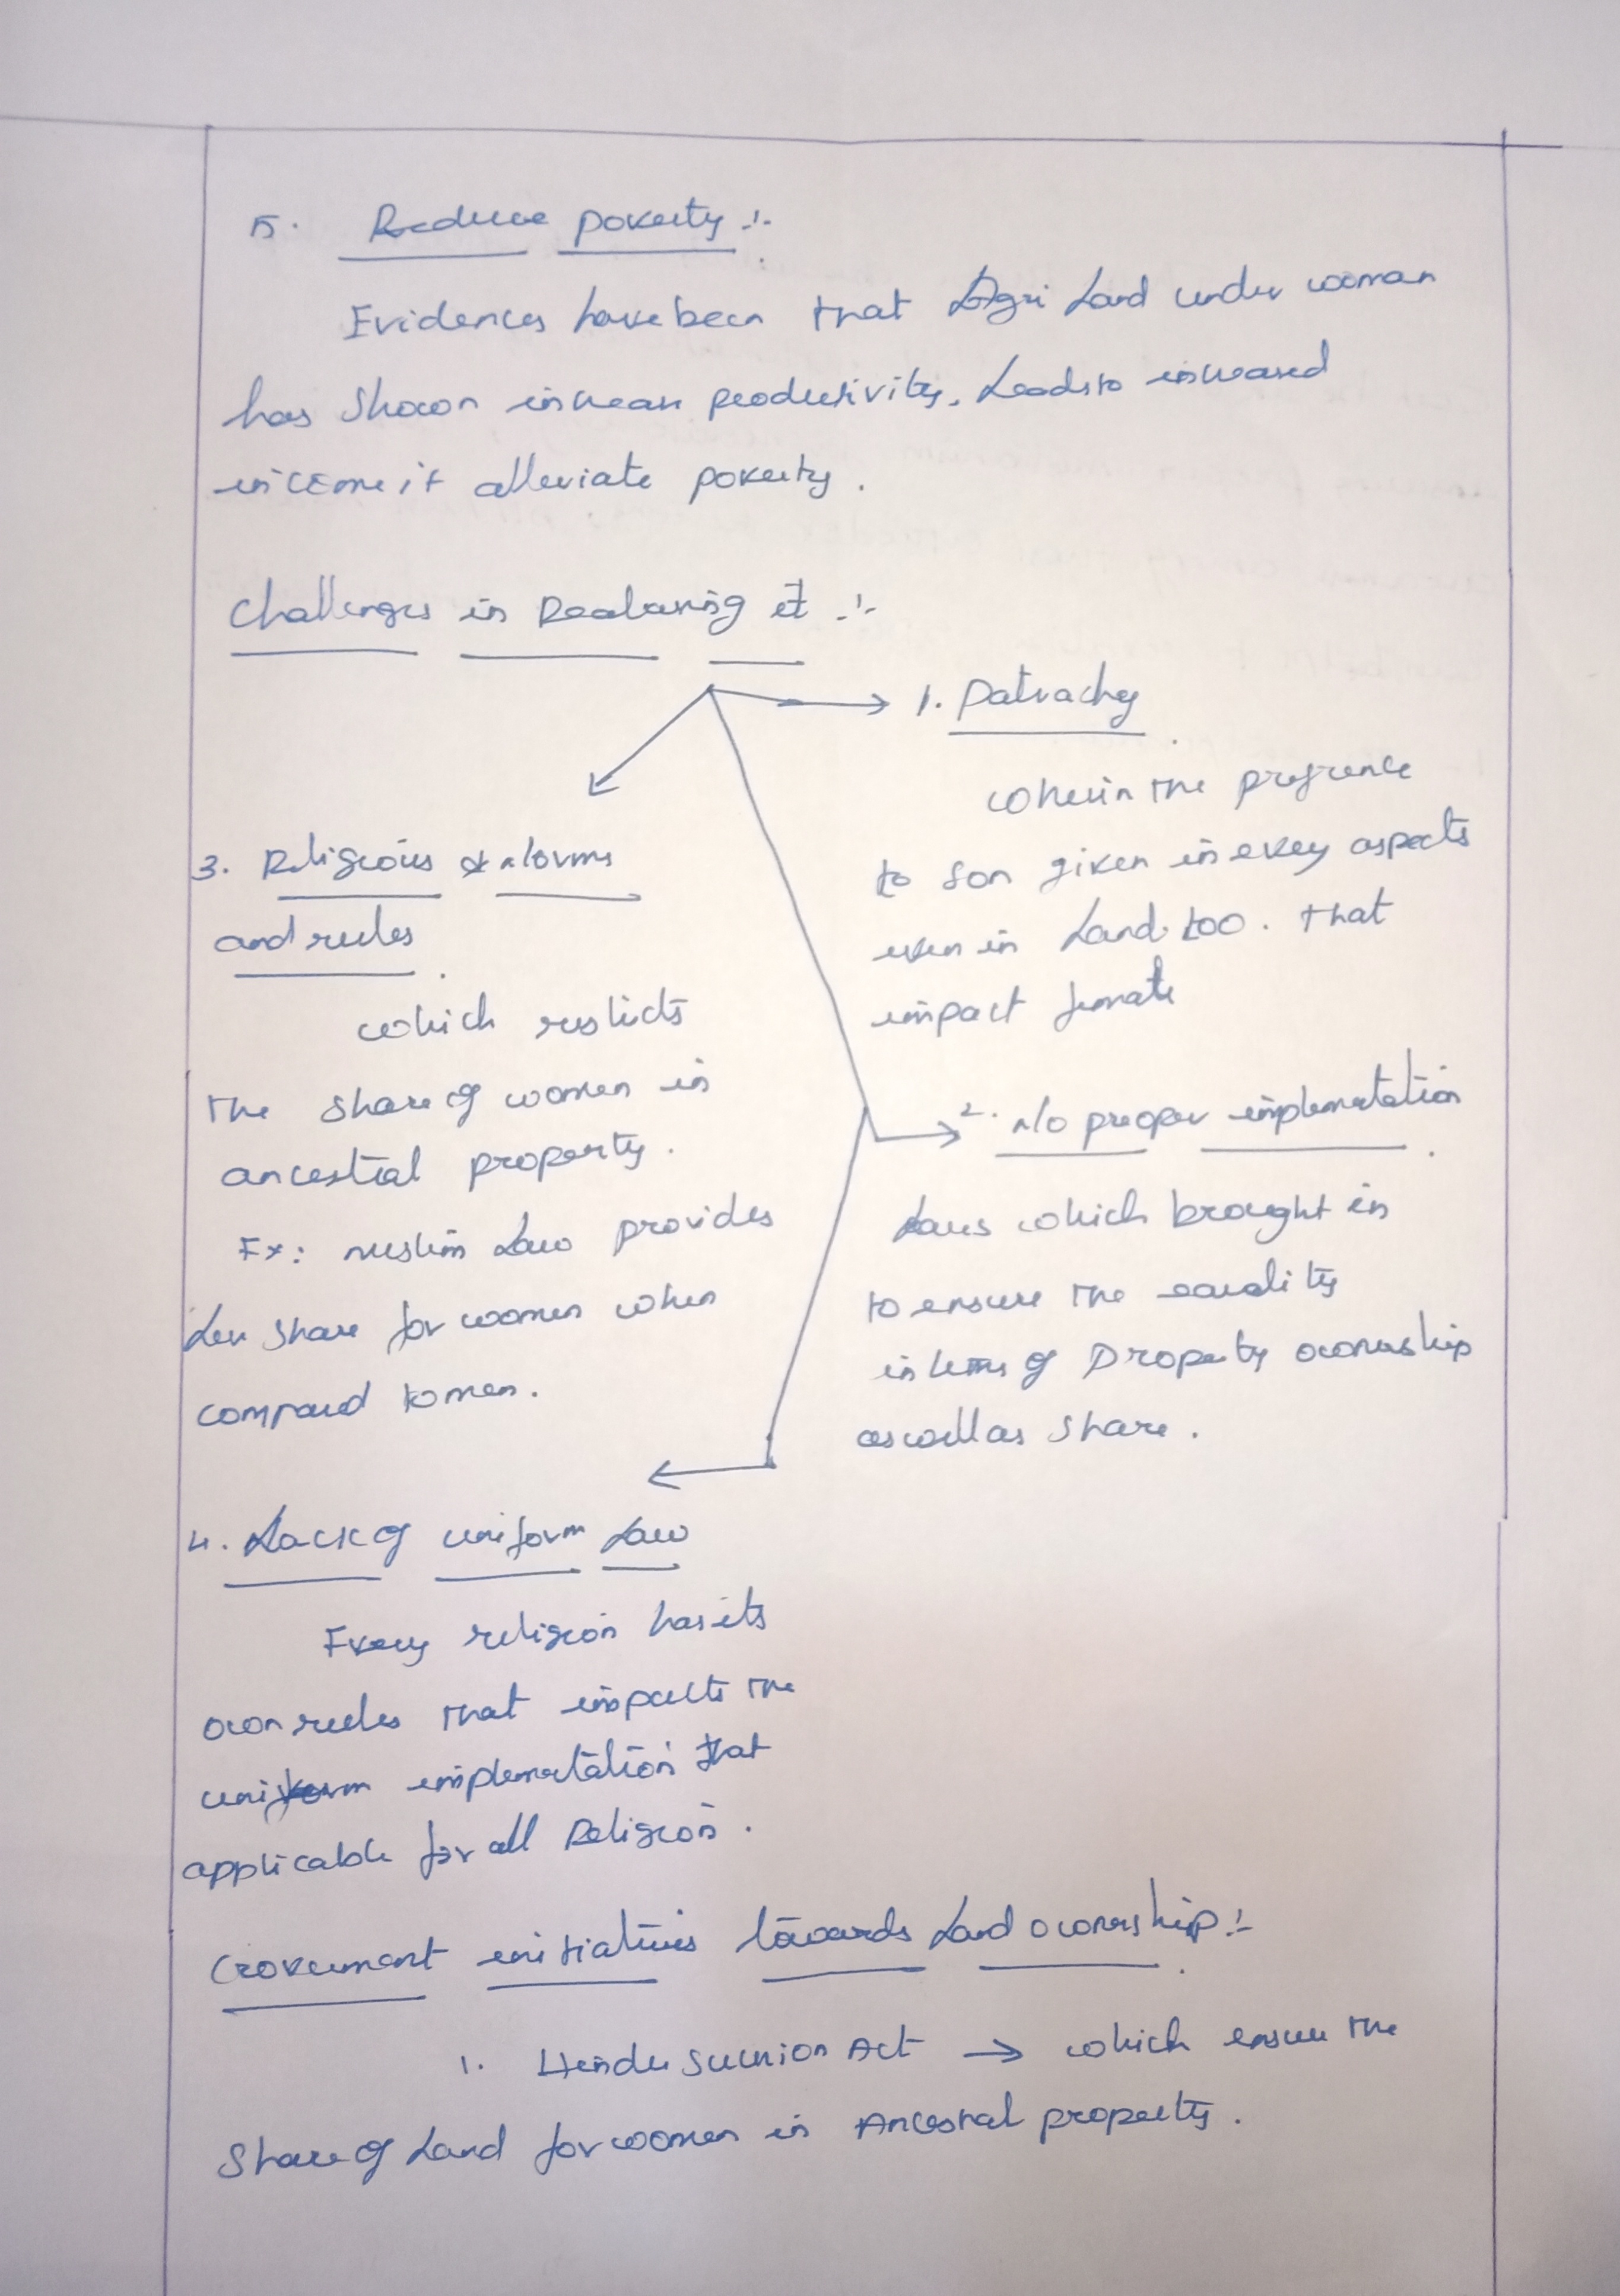 5. Reduce poverty :-
Evidences have been that Agri Land under woman
has shown increase productivity, Leads to increased
income it alleviate poverty.
Challenges in Realaring it :-
1. Patrachy
wherein the prefrence
to son given in every aspects
even in Land too. That
impact female
2. No proper implemetation
Laws which brought in
to ensure the equality
in terms of Property ownership
as well as share.
3. Religious & Norms
and rules
which restricts
the share of women in
ancestral property.
Ex: Muslim Law provides
Less share for women when
compared to men.
4. Lack of uniform Law
Every religion has its
own rules that impacts the
uniform implemetation that
applicable for all Religion.
Government initiatives towards Land ownership :-
1. Hindu Succession Act → which ensure the
Share of Land for women in Ancestral property.